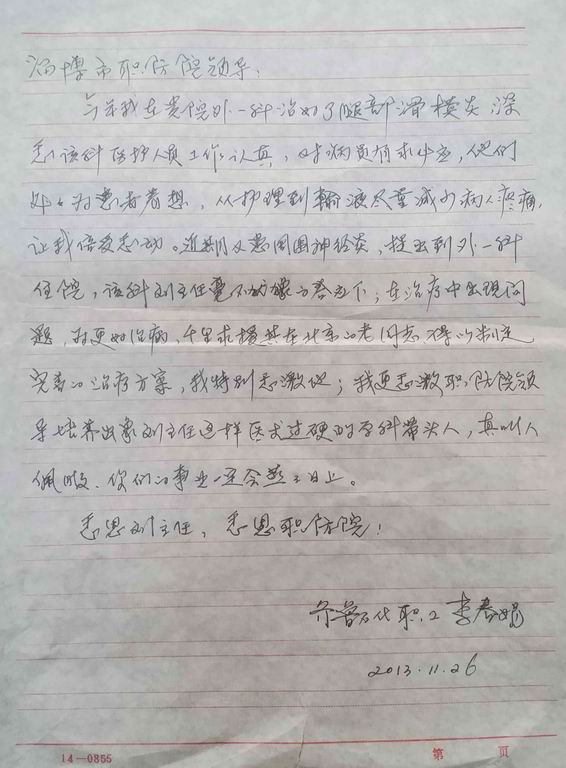 淄博市职防院领导：
今年我在贵院外一科治好了腿部滑模炎，深
感该科医护人员工作认真，对病员有求必应，他们
处处为患者着想，从护理到输液尽量减少病人疼痛，
让我倍受感动。近期又患周围神经炎，提出到外一科
住院，该科刘主任毫不犹豫的答应下；在治疗中出现问
题，为更好治病，千里求援其在北京的老同志得以制定
完善的治疗方案，我特别感激他；我更感激职防院领
导培养出象刘主任这样医术过硬的学科带头人，真叫人
佩服、你们的事业一定会蒸蒸日上。
感恩刘主任，感恩职防院！
齐鲁石化职工 李春娟
2013.11.26
14—0855
第 页